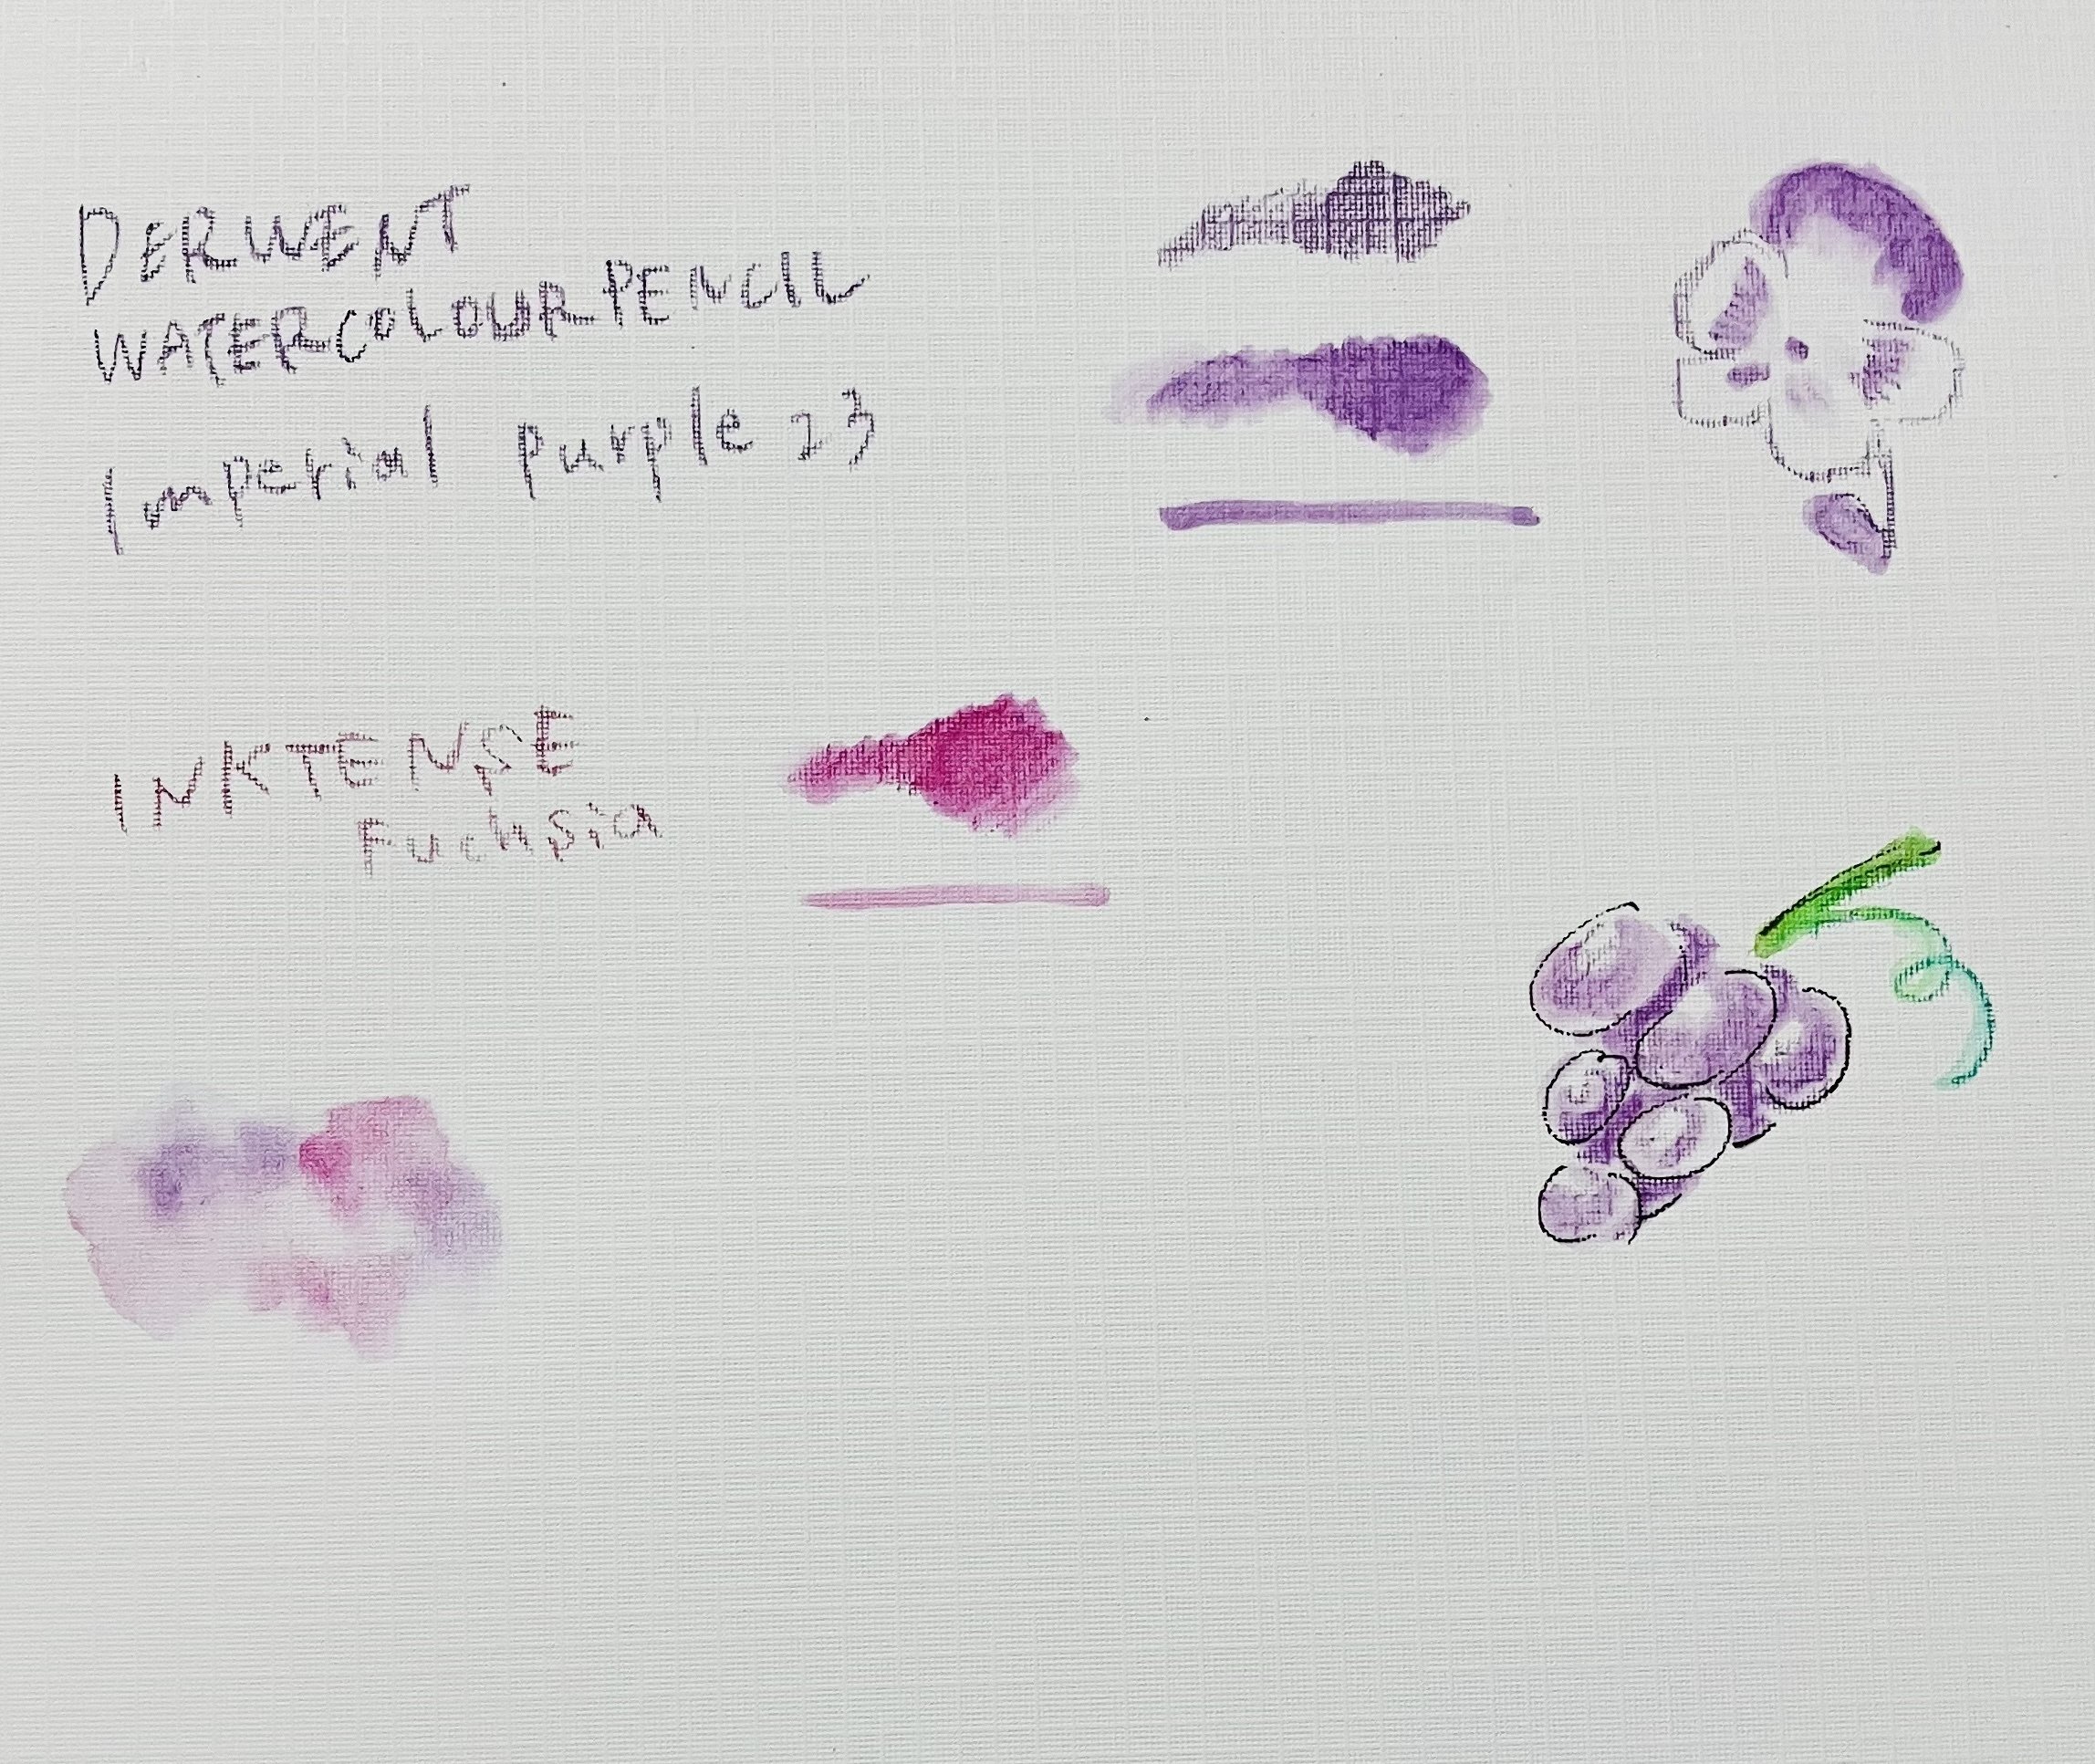 DERWENT
WATERCOLOUR PENCIL
Imperial Purple 23
INKTENSE
Fuchsia